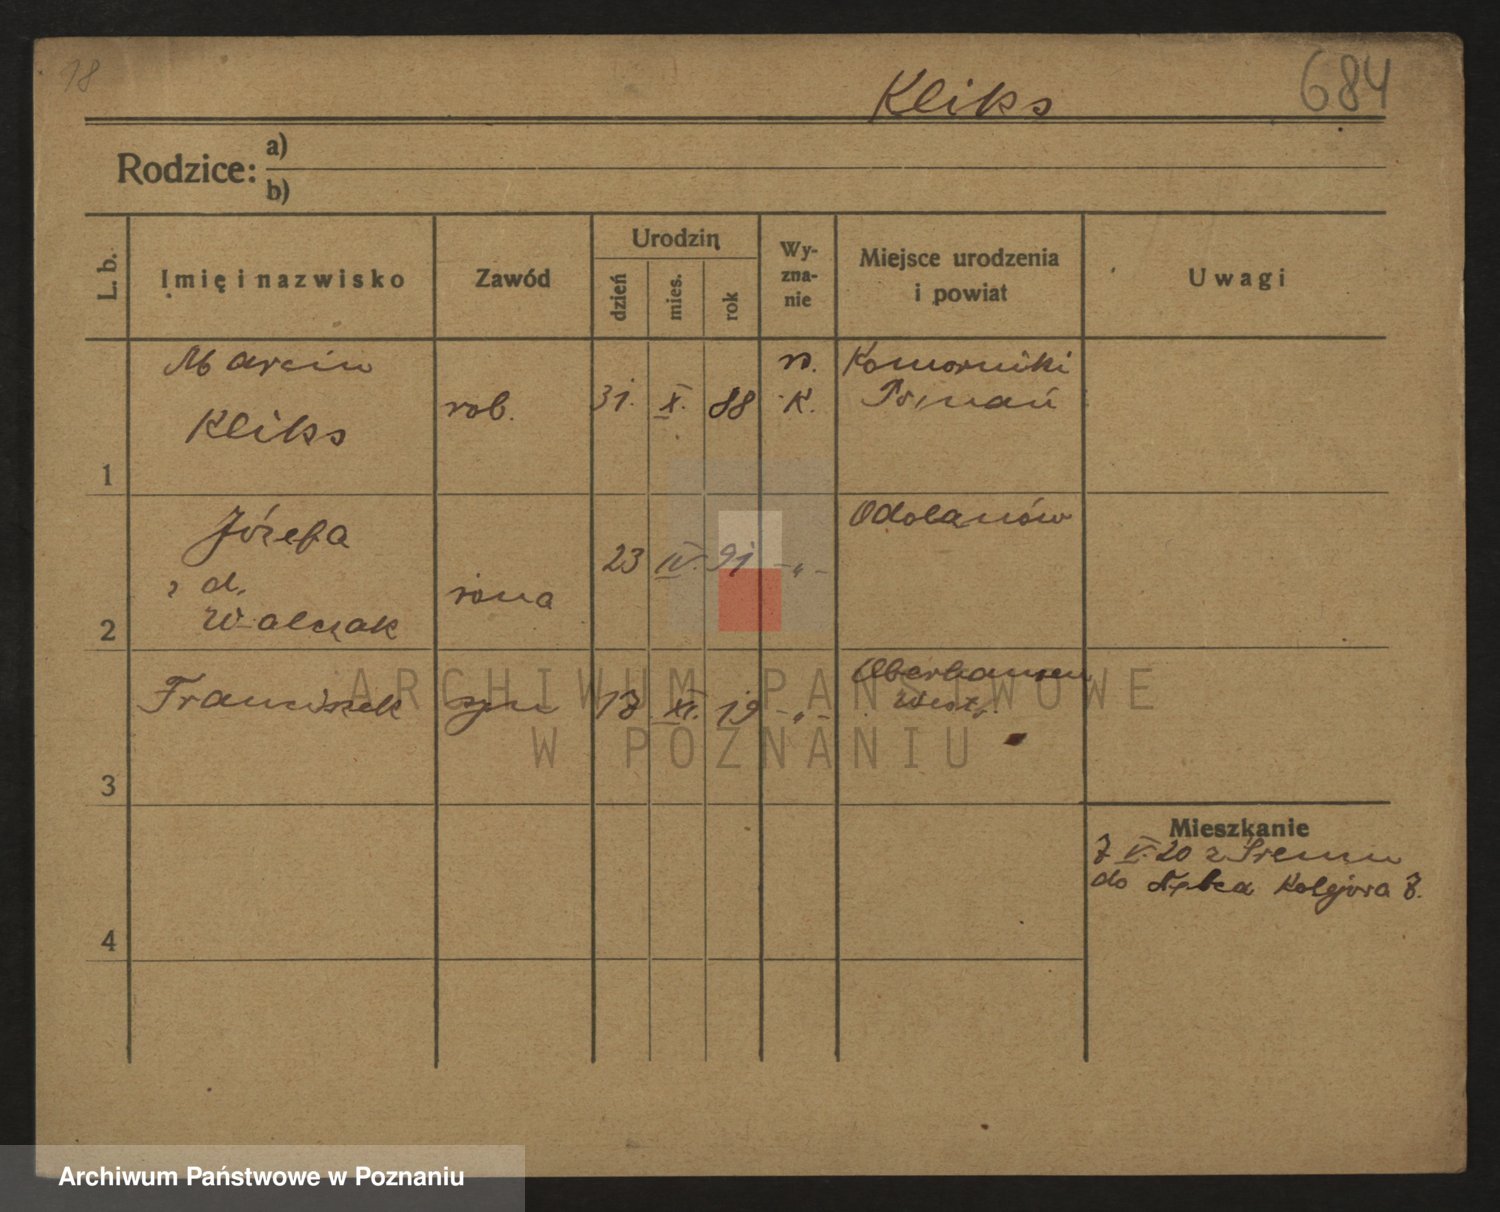 18
Kliks
684
Rodzice: a)
b)
L. b.
Imię i nazwisko
Zawód
Urodzin
dzień
mies.
rok
Wy-
zna-
nie
Miejsce urodzenia
i powiat
Uwagi
1
Marcin
Kliks
rob.
31. X. 88
K.
Komorniki
Poznań
2
Józefa
z d.
Walczak
żona
23 IV. 91 -"-
Odolanów
3
Franciszek
syn
XI. 19 -"-
Oberhausen
Westf.
4
Mieszkanie
V. 20 z Śremu
do
ARCHIWUM PAŃSTWOWE
W POZNANIU
Archiwum Państwowe w Poznaniu